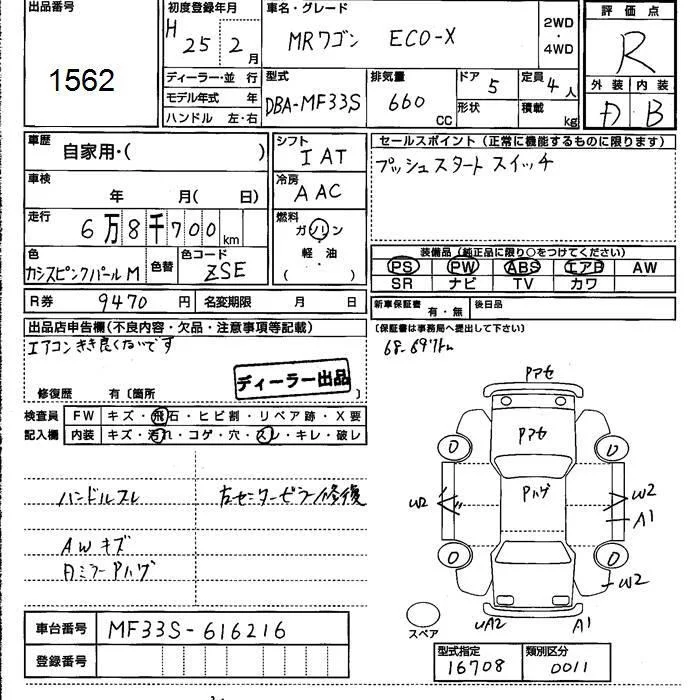 出品番号
1562
初度登録年月
H 25 2 月
車名・グレード
MRワゴン ECO-X
2WD
・
4WD
評価点
R
外装 内装
D B
ディーラー・並行
モデル年式 年
ハンドル 左・右
型式
DBA-MF33S
排気量
660
CC
ドア 5
形状
定員
4人
積載 kg
車歴
自家用・( )
シフト
IAT
セールスポイント(正常に機能するものに限ります)
プッシュスタートスイッチ
車検
年 月( 日)
冷房
AAC
走行
6万8千700km
燃料
ガソリン
・
軽油
( )
色
カシスピンクパールM
色替
色コード
ZSE
装備品(純正品に限り○をつけてください)
PS PW ABS エアB AW
SR ナビ TV カワ
R券 9470 円
名変期限 月 日
新車保証書
有・無
後日品
(保証書は事務局へ提出して下さい)
出品店申告欄(不良内容・欠品・注意事項等記載)
エアコンきき良くないです
68-697km
ディーラー出品
修復歴 有〔箇所 〕
検査員
記入欄
FW キズ・飛石・ヒビ割・リペア跡・X要
内装 キズ・汚れ・コゲ・穴・スレ・キレ・破レ
ハンドルスレ
右センターピラー修復
AWキズ
Dミラーアハゲ
Pアセ
Pアセ
Pハゲ
W2
W2
A1
W2
UA2
A1
スペア
車台番号 MF33S-616216
登録番号
型式指定
16708
類別区分
0011